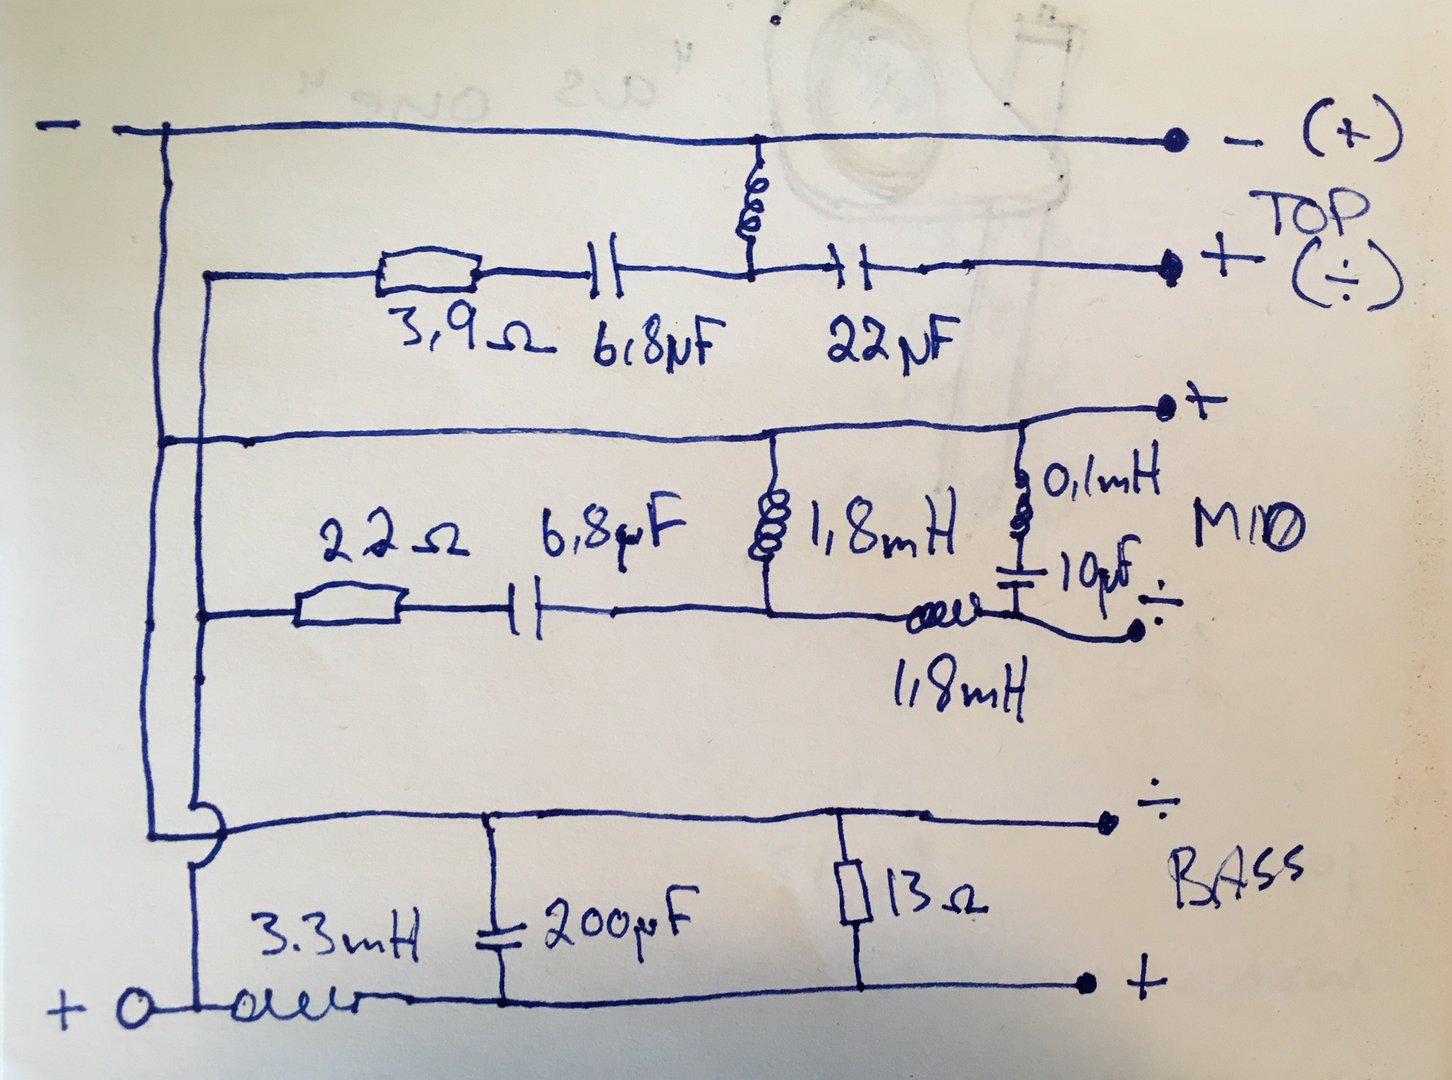 "as one"
- - (+)
TOP
+ (÷)
3,9Ω 6,8μF 22μF
+
0,1mH
22Ω 6,8μF 1,8mH MID
10μF ÷
1,8mH
÷
BASS
3.3mH 200μF 13Ω
+ +